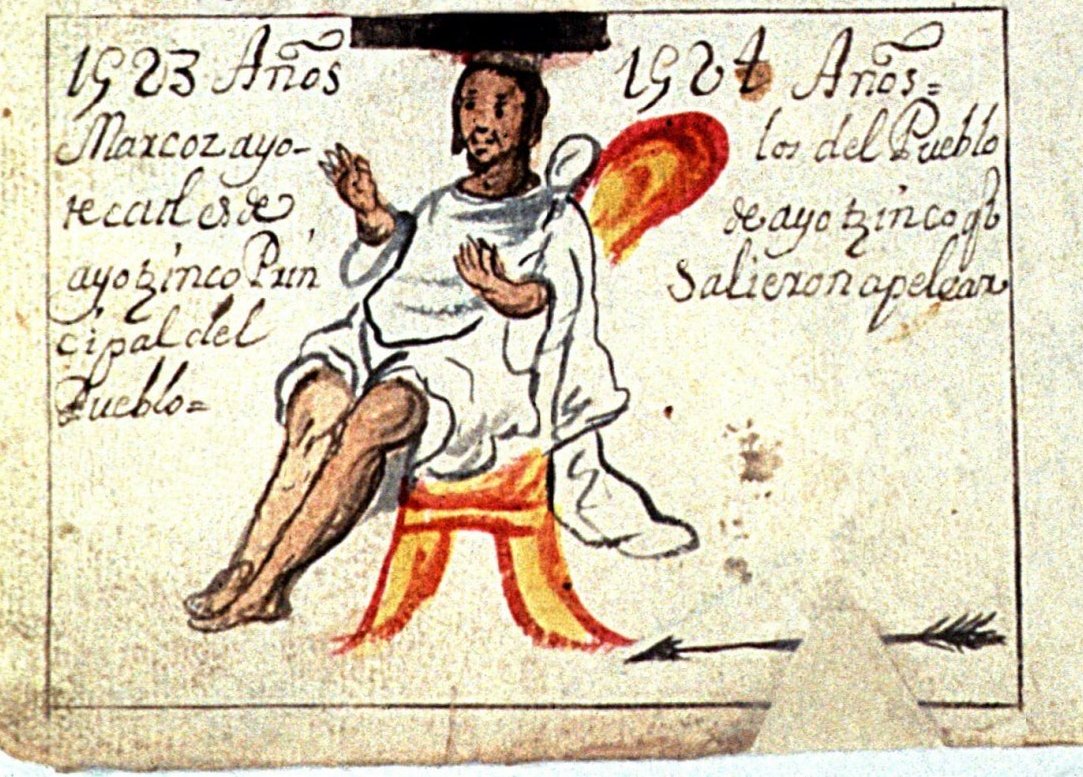 1523 Años
Marcoz ayo-
tecatl es de
ayotzinco Prin
cipal del
Pueblo=
1524 Años=
los del Pueblo
de ayotzinco
Salieron apelear